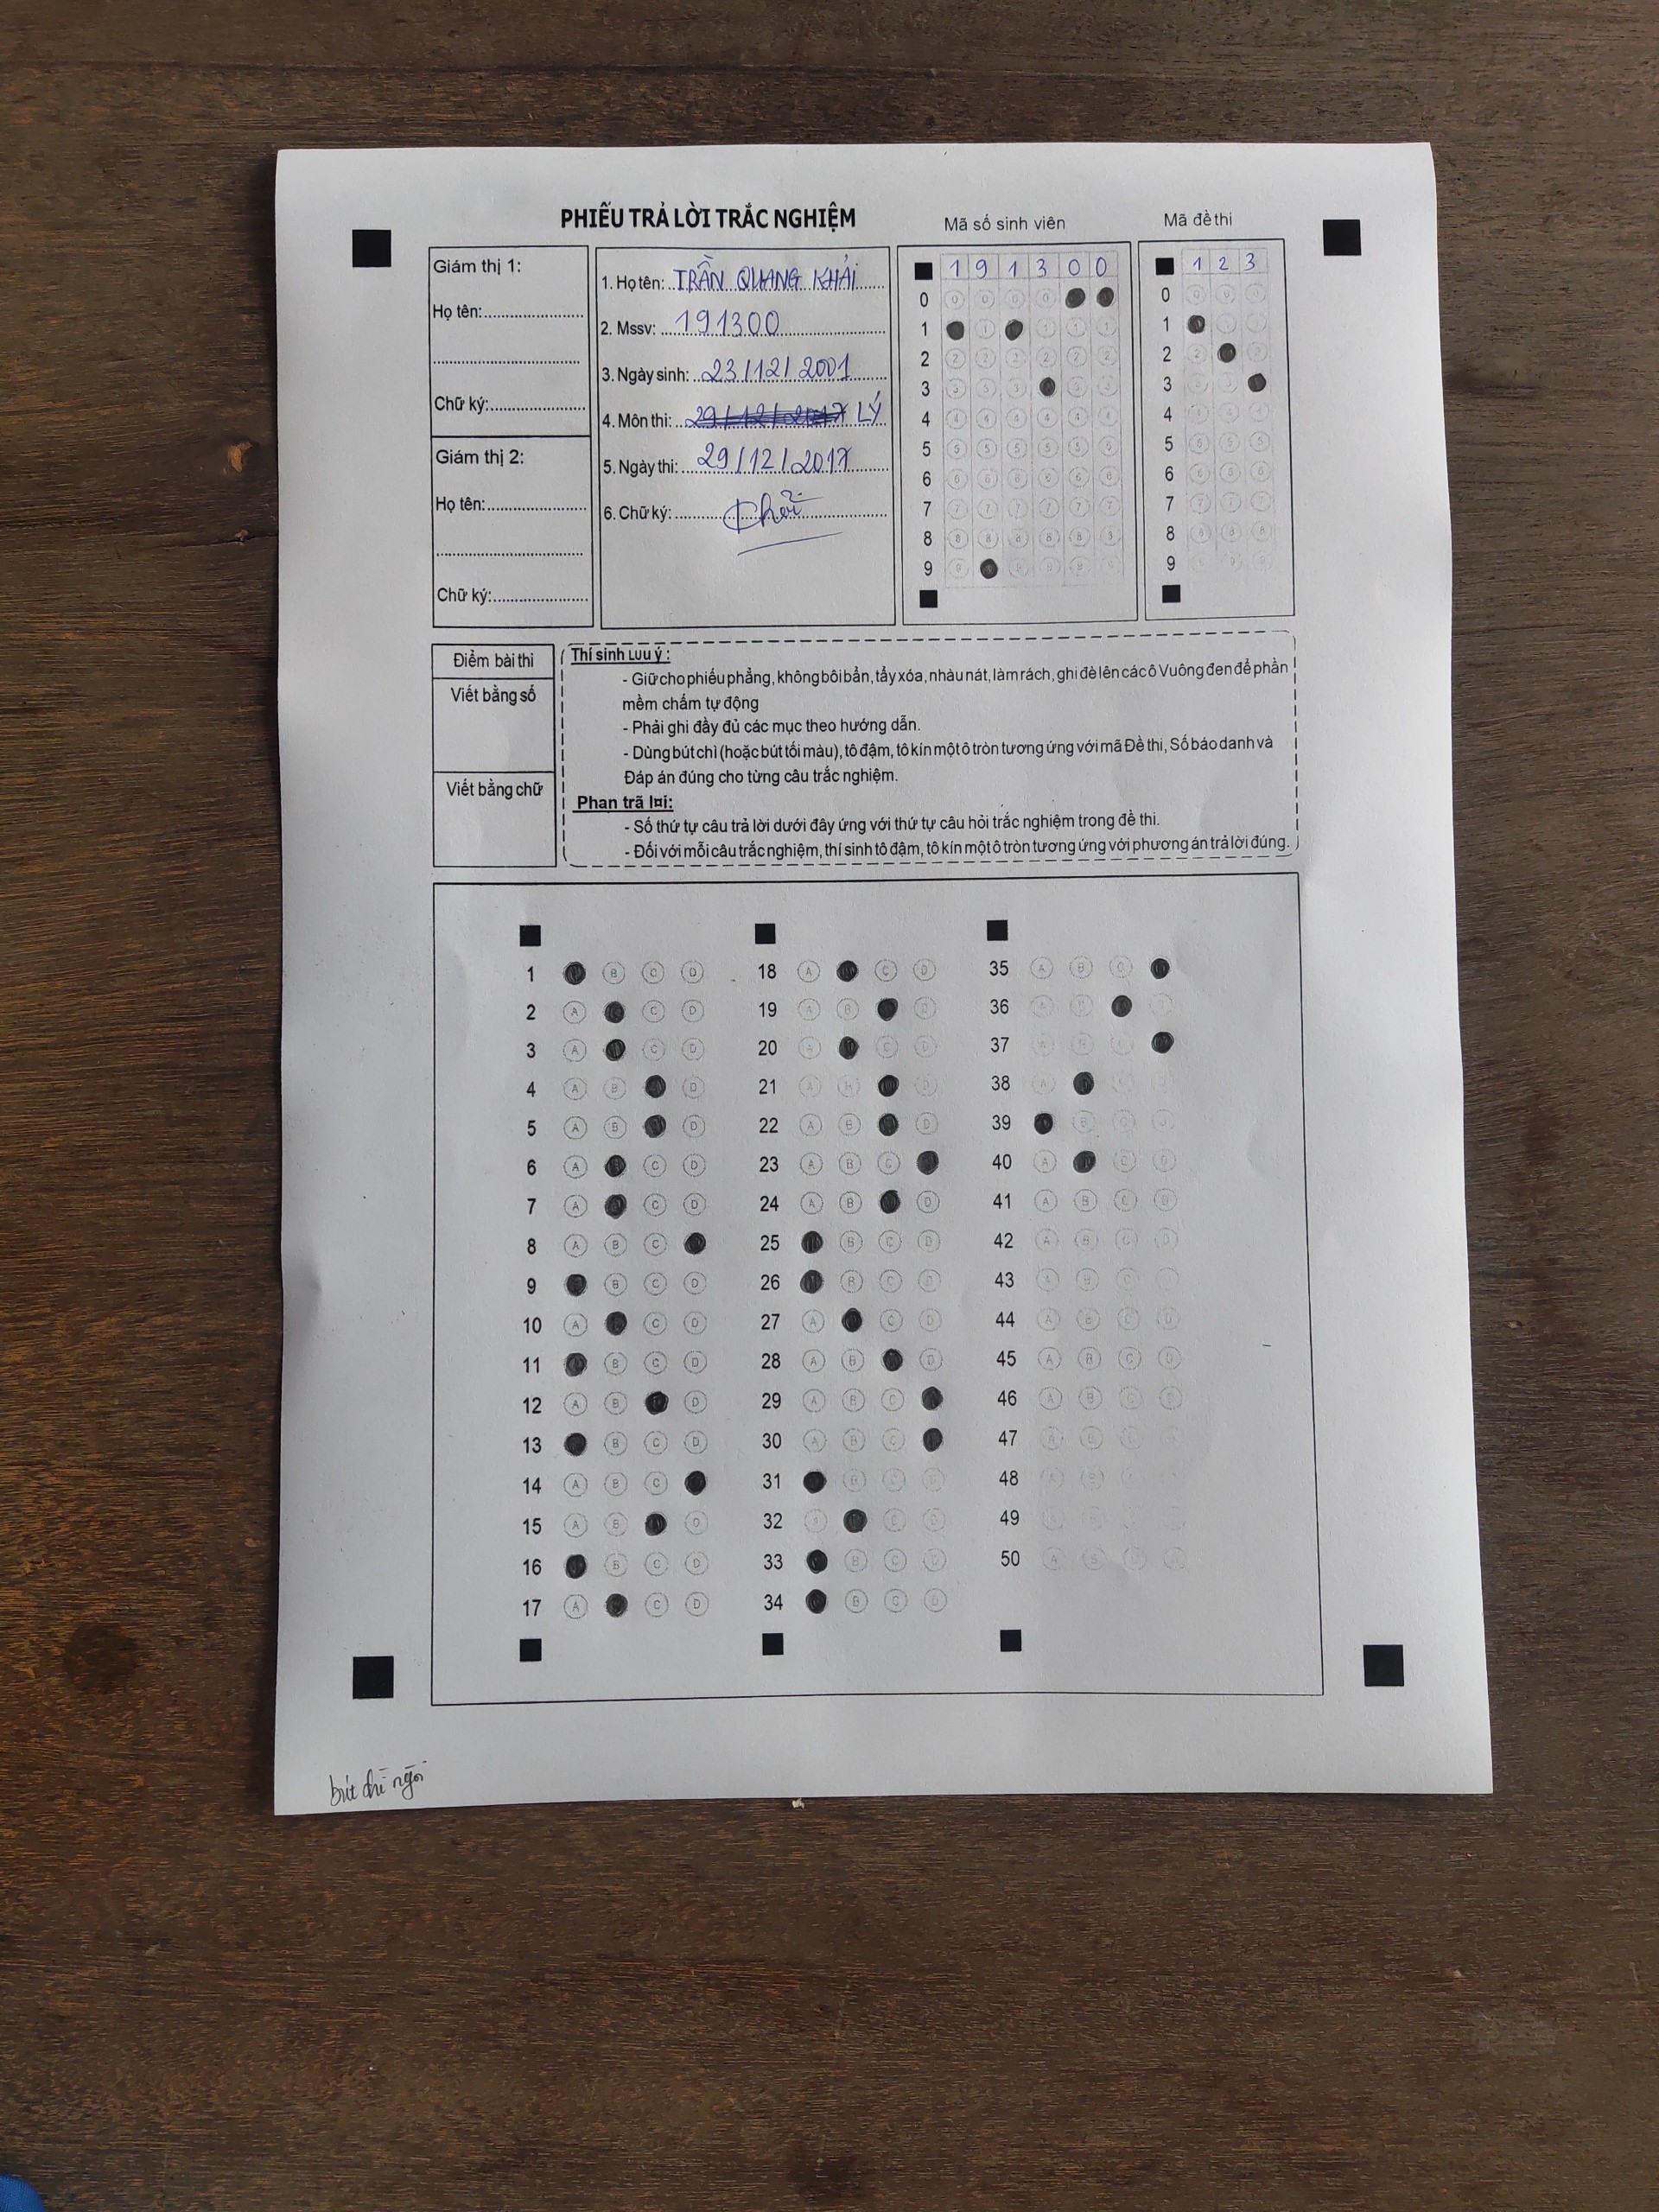 PHIẾU TRẢ LỜI TRẮC NGHIỆM
Giám thị 1:
Họ tên:......................
....................................
Chữ ký:.....................
Giám thị 2:
Họ tên:......................
....................................
Chữ ký:.....................
1. Họ tên: TRẦN QUANG KHẢI
2. Mssv: 191300
3. Ngày sinh: 23/12/2001
4. Môn thi: 29/12/2017 LÝ
5. Ngày thi: 29/12/2017
6. Chữ ký:
Mã số sinh viên
1 9 1 3 0 0
0
1
2
3
4
5
6
7
8
9
Mã đề thi
1 2 3
0
1
2
3
4
5
6
7
8
9
Điểm bài thi
Viết bằng số
Viết bằng chữ
Thí sinh Lưu ý :
- Giữ cho phiếu phẳng, không bôi bẩn, tẩy xóa, nhàu nát, làm rách, ghi đè lên các ô Vuông đen để phần
mềm chấm tự động
- Phải ghi đầy đủ các mục theo hướng dẫn.
- Dùng bút chì (hoặc bút tối màu), tô đậm, tô kín một ô tròn tương ứng với mã Đề thi, Số báo danh và
Đáp án đúng cho từng câu trắc nghiệm.
Phan trã l¤i:
- Số thứ tự câu trả lời dưới đây ứng với thứ tự câu hỏi trắc nghiệm trong đề thi.
- Đối với mỗi câu trắc nghiệm, thí sinh tô đậm, tô kín một ô tròn tương ứng với phương án trả lời đúng.
1 B C D
2 A C D
3 A C D
4 A B D
5 A B D
6 A C D
7 A C D
8 A B C
9 B C D
10 A C D
11 B C D
12 A B D
13 B C D
14 A B C
15 A B D
16 B C D
17 A C D
18 A C D
19 A B D
20 A C D
21 A B D
22 A B D
23 A B C
24 A B D
25 B C D
26 B C D
27 A C D
28 A B D
29 A B C
30 A B C
31 B C D
32 A C D
33 B C D
34 B C D
35 A B C
36 A B D
37 A B C
38 A C D
39 B C D
40 A C D
41 A B C D
42 A B C D
43 A B C D
44 A B C D
45 A B C D
46 A B C D
47 A B C D
48 A B C D
49 A B C D
50 A B C D
bút chì ngòi